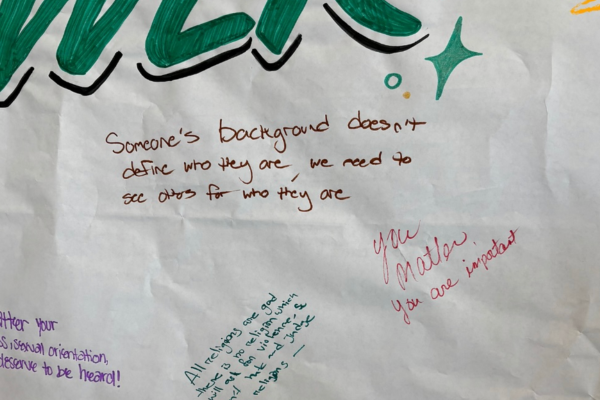 WER
Someone's background doesn't
define who they are, we need to
see othrs for who they are
you
Matter
you are important
All religions are good
there is no religion which
will ask for violence, &
hate and judge
religions
your
sexual orientation,
deserve to be heard!